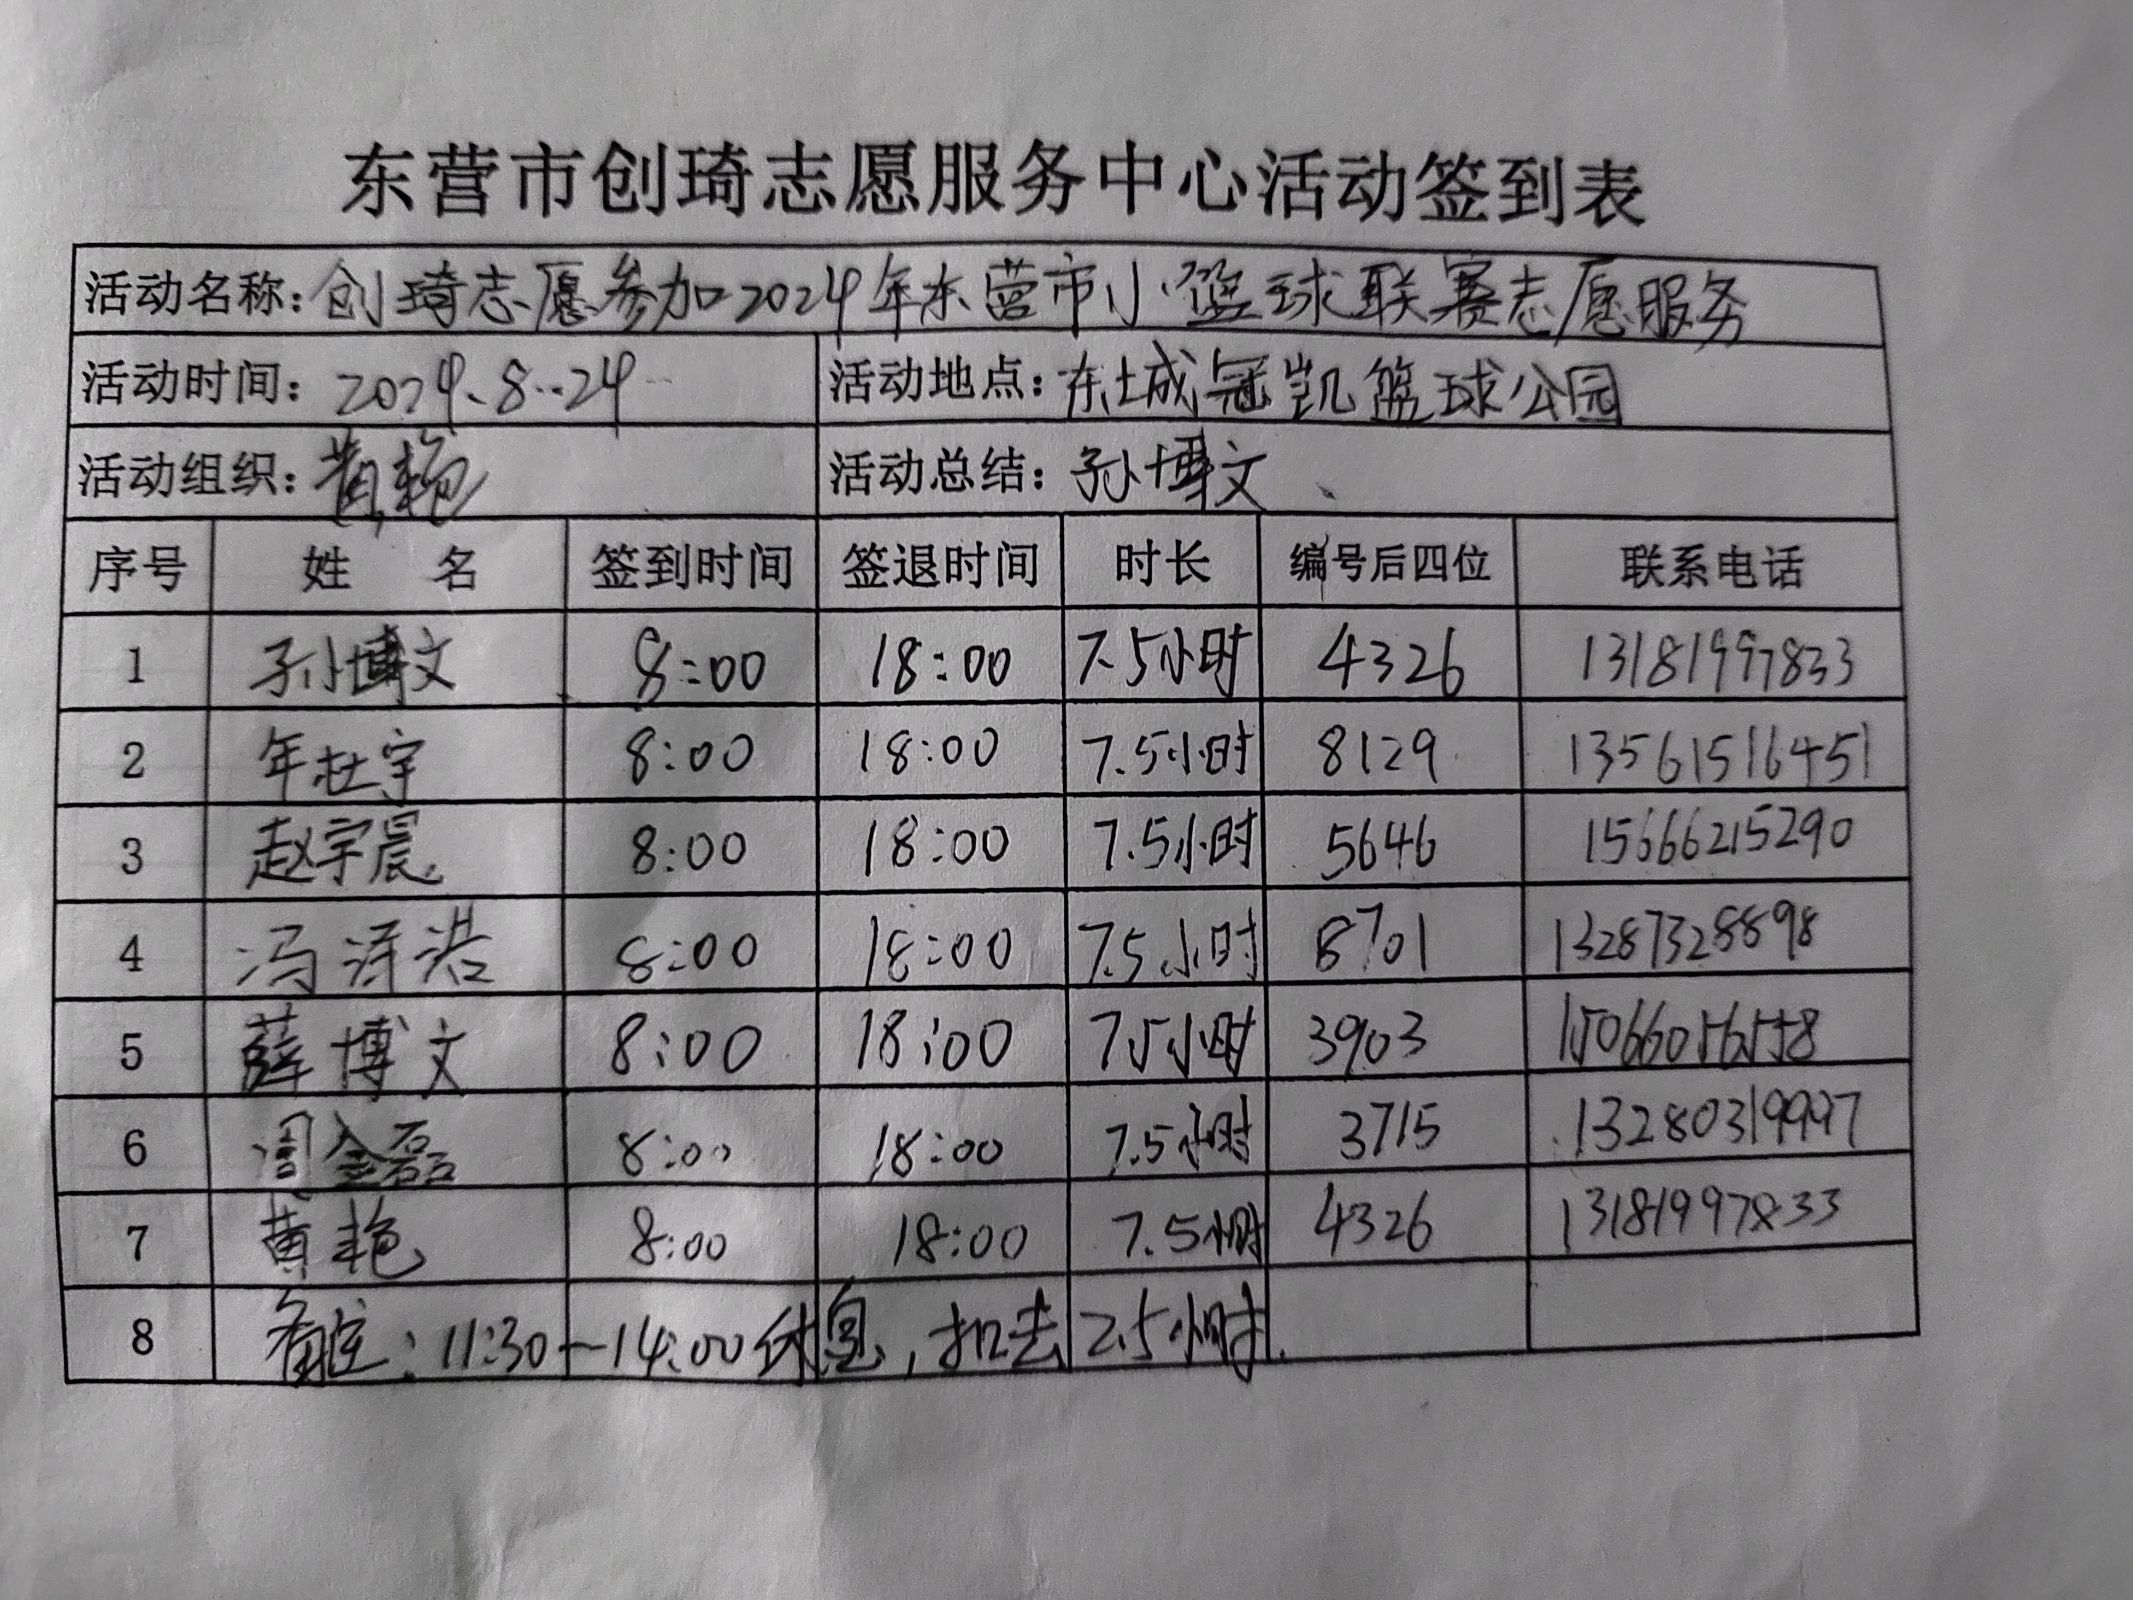 东营市创琦志愿服务中心活动签到表
活动名称：创琦志愿参加2024年东营市小篮球联赛志愿服务
活动时间：2024.8.24 活动地点：东城冠凯篮球公园
活动组织：黄艳 活动总结：孙博文
序号 姓名 签到时间 签退时间 时长 编号后四位 联系电话
1 孙博文 8:00 18:00 7.5小时 4326 13181997833
2 年杜宇 8:00 18:00 7.5小时 8129 13561516451
3 赵宇晨 8:00 18:00 7.5小时 5646 15666215290
4 冯泽浩 8:00 18:00 7.5小时 8701 13287328898
5 薛博文 8:00 18:00 7.5小时 3903 15066056558
6 周金磊 8:00 18:00 7.5小时 3715 13280319997
7 黄艳 8:00 18:00 7.5小时 4326 13181997833
8 备注：11:30—14:00休息，扣去2.5小时.